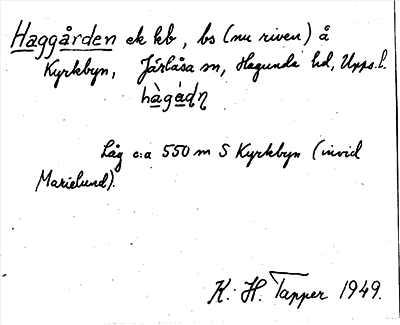 Haggården ek kb, bs (nu riven) å
Kyrkbyn, Järlåsa sn, Hagunda hd, Upps.l.
hàgádn̥
Låg c:a 550 m S Kyrkbyn (invid
Marielund).
K. H. Tapper 1949.